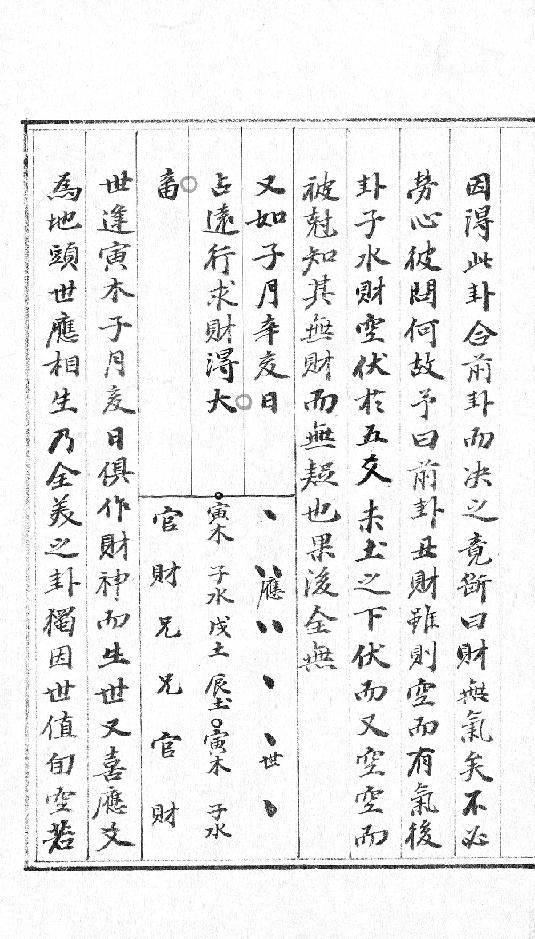 因得此卦合前卦而决之竟斷曰財無氣矣不必
勞心彼問何故予曰前卦丑財雖則空而有氣後
卦子水財空伏於五爻未土之下伏而又空空而
被尅知其無財而無疑也果後全無
又如子月辛亥日
占遠行求財得大
畜
應 世
寅木 子水 戌土 辰土 寅木 子水
官 財 兄 兄 官 財
世逢寅木子月亥日俱作財神而生世又喜應爻
為地頭世應相生乃全美之卦獨因世值旬空若